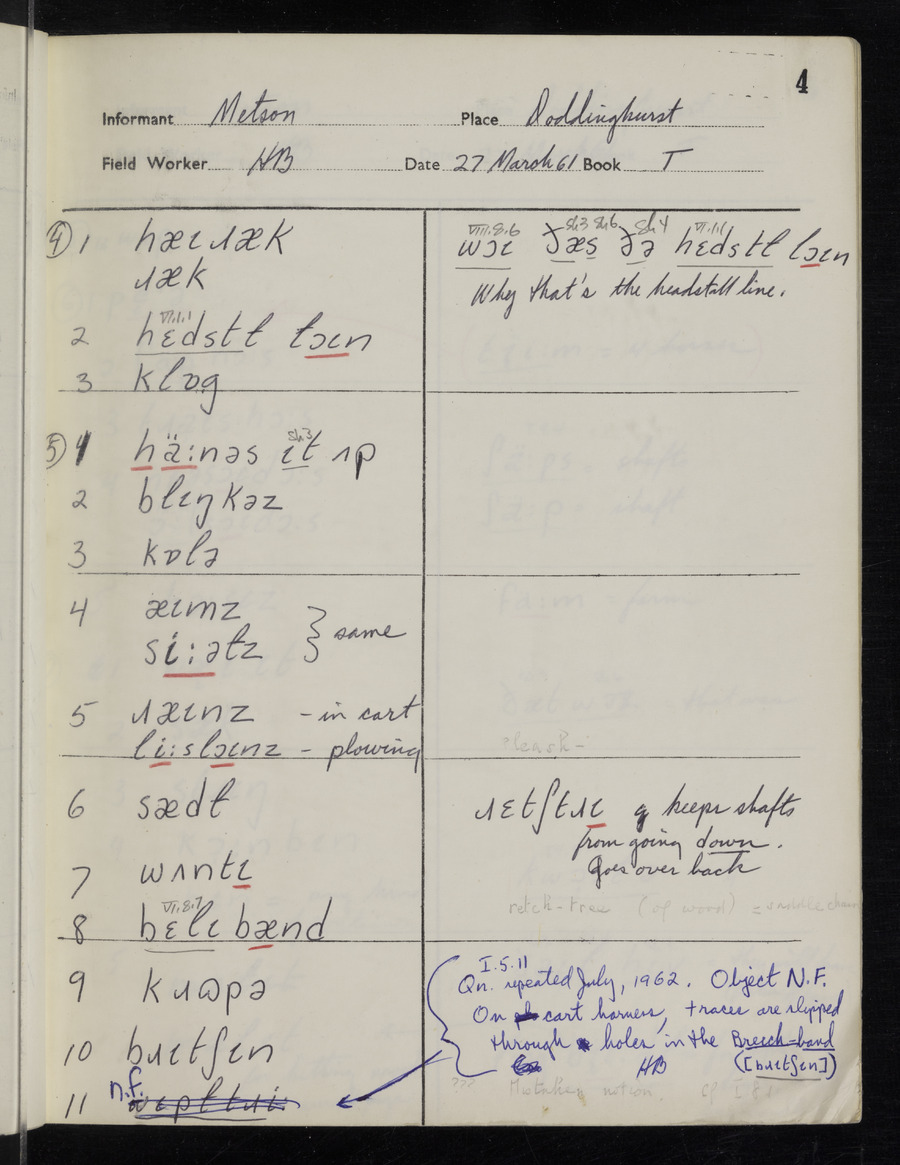 4
Informant Metson Place Doddinghurst
Field Worker HB Date 27 March 61 Book T
④ 1 hæɪ ɹæk
ɹæk
VIII.8.6 sh3 sh6 sh4 VI.1.1
wɔɪ ðæs ðə hɛdstɫ lɔɪn
Why that's the headstall line.
VI.1.1
2 hɛdstɫ lɔɪn
3 klɒg
sh3
⑤ 1 hä:nəs ɪt ʌp
2 blɪŋkəz
3 kɒlə
4 æɪmz
si:ətz } same
5 ɹæɪnz - in cart
li:slɔɪnz - plowing
pleash-
6 sædɫ
ɹɛtʃtɹɪ q keeps shafts
from going down.
Goes over back
retch-tree (of wood) = saddle chain
7 wʌntɪ
VI.8.7
8 bɛlɪ bænd
9 kɹɷpə
10 bɹɪtʃɪn
11 n.f.
I.5.11
Qn. repeated July, 1962. Object N.F.
On cart harness, traces are slipped
through holes in the Breech-band
HB ([bɹɪtʃɪn])
??? Mistaken notion. cf I 8 1